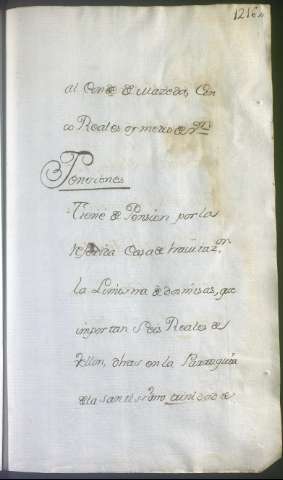 1216
al Conde de Maceda, Cin
co Reales y medio de v.on
Pensiones
Tiene de Pension por la
referida Casa de havitaz.on
la Limosna de dos misas, que
importan Seis Reales de
Vellon, dhas en la Parroquia
de la santisima trinidad de